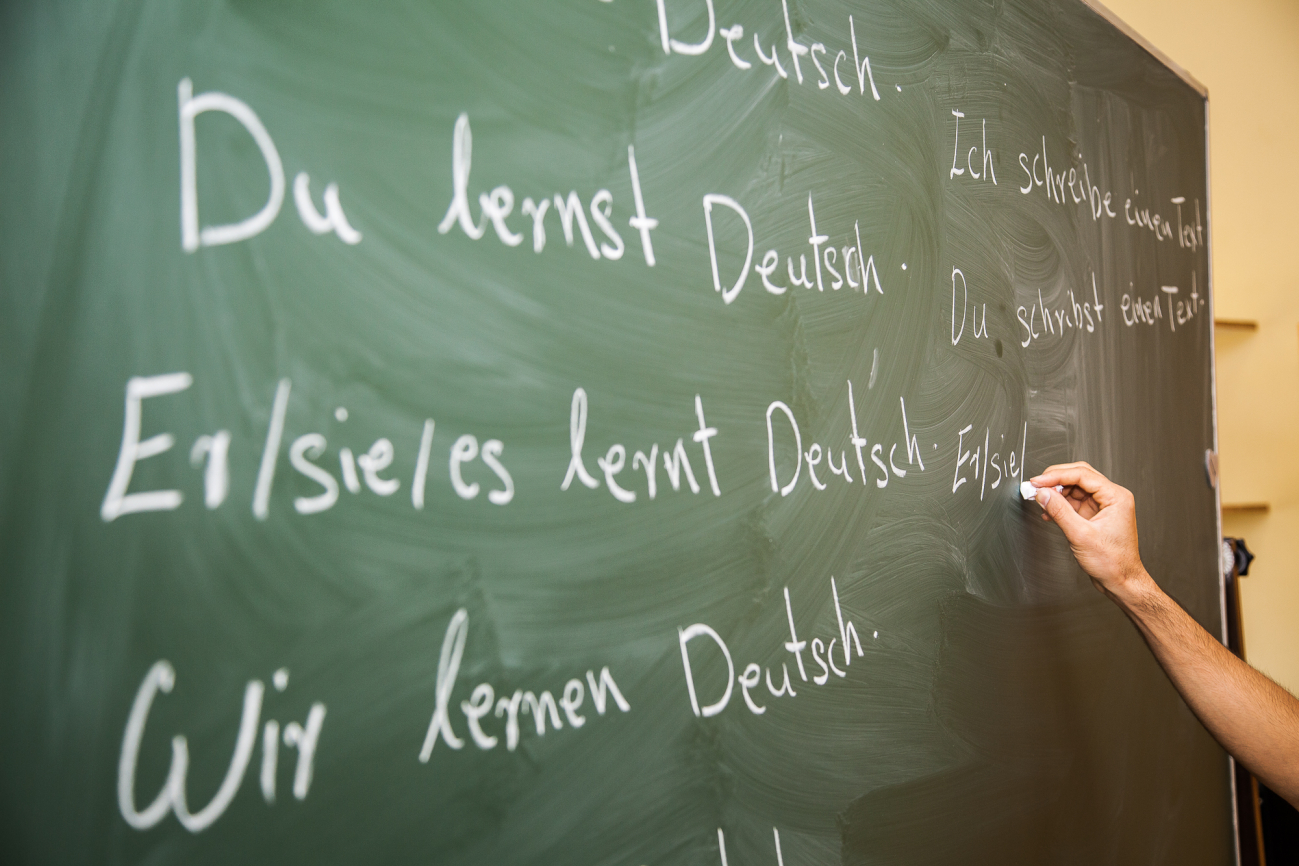 Deutsch.
Du lernst Deutsch.
Er/sie/es lernt Deutsch.
Wir lernen Deutsch.
Ich schreibe einen Text
Du schribst einen Text.
Er/sie/